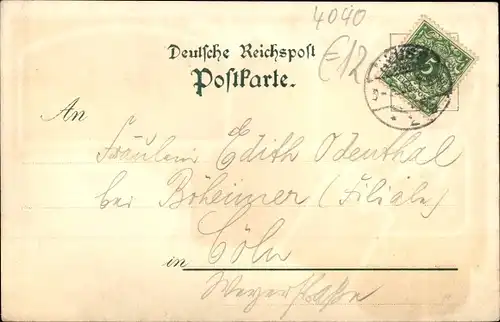 4040
€12
Deutsche Reichspost
Postkarte.
5
An
Fräulein Edith Odenthal
bei Böheimer (Filiale)
in Cöln
Weyerstraße